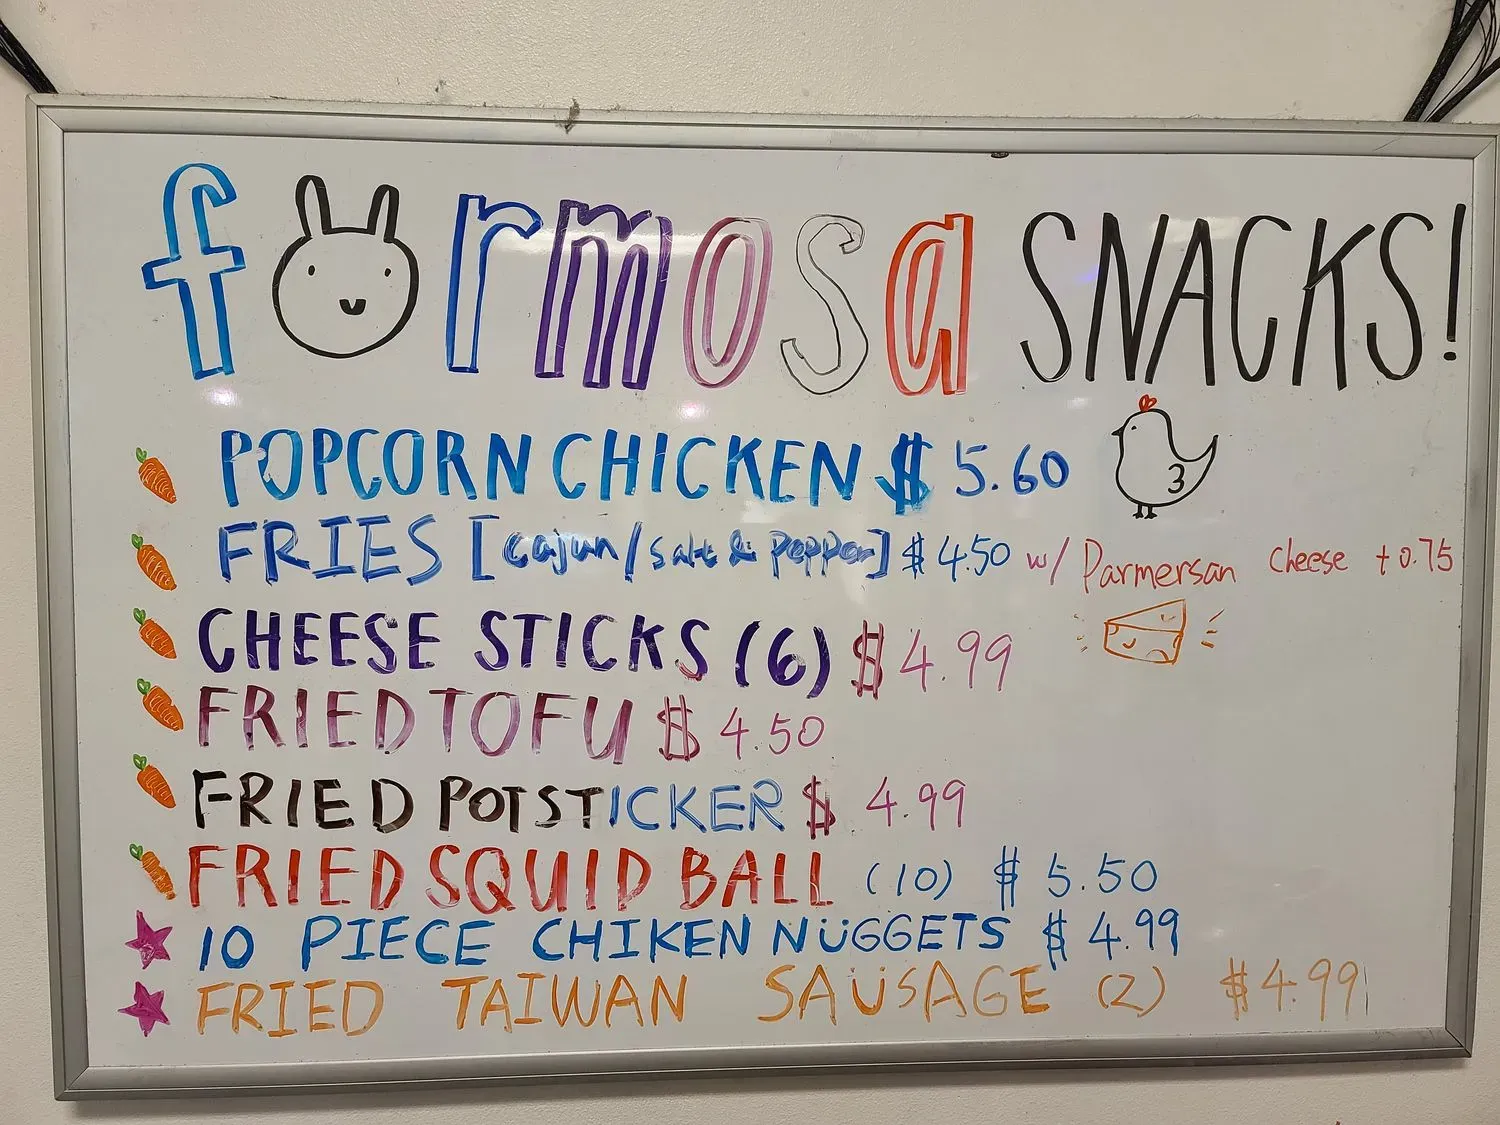 formosa SNACKS!
POPCORN CHICKEN $ 5.60
3
FRIES [cajun/salt & Pepper] $ 4.50 w/ Parmersan cheese +0.75
CHEESE STICKS (6) $ 4.99
FRIED TOFU $ 4.50
FRIED POTSTICKER $ 4.99
FRIED SQUID BALL (10) $ 5.50
10 PIECE CHIKEN NUGGETS $ 4.99
FRIED TAIWAN SAUSAGE (2) $4.99